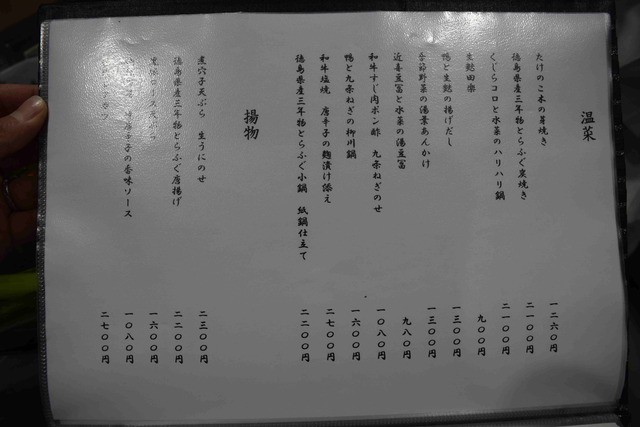 温菜
たけのこ木の芽焼き 一二六〇円
徳島県産三年物とらふぐ炭焼き 二一〇〇円
くじらコロと水菜のハリハリ鍋 二一〇〇円
生麩田楽 九〇〇円
鴨と生麩の揚げだし 一三〇〇円
季節野菜の湯葉あんかけ 一三〇〇円
近喜豆冨と水菜の湯豆冨 九八〇円
和牛すじ肉ポン酢 九条ねぎのせ 一〇八〇円
鴨と九条ねぎの柳川鍋 一六〇〇円
和牛塩焼 唐辛子の麹漬け添え 二七〇〇円
徳島県産三年物とらふぐ小鍋 紙鍋仕立て 二二〇〇円
揚物
煮穴子天ぷら 生うにのせ 二三〇〇円
徳島県産三年物とらふぐ唐揚げ 二二〇〇円
一六〇〇円
唐辛子の香味ソース 一〇八〇円
カツ 二七〇〇円